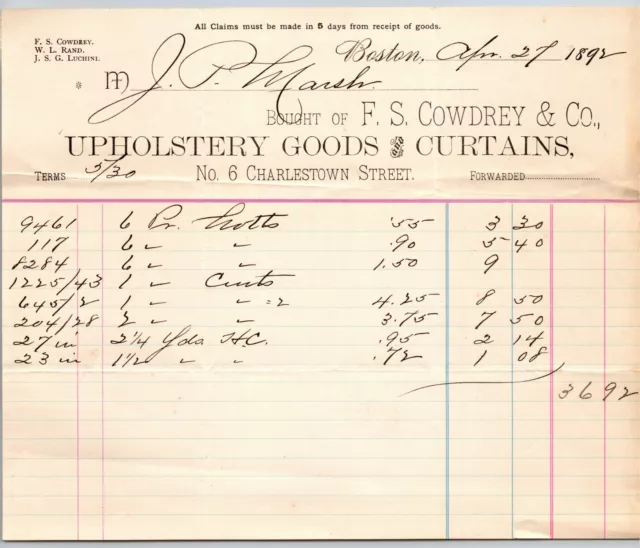 All Claims must be made in 5 days from receipt of goods.
F. S. Cowdrey.
W. L. Rand.
J. S. G. Luchini.
Boston, Apr. 27 1892
* M J. P. Marsh.
Bought of F. S. Cowdrey & Co.,
Upholstery Goods and Curtains,
Terms 5/30 No. 6 Charlestown Street. Forwarded
9461 6 Pr. Notts .55 3 30
117 6 " " .90 5 40
8284 6 " " 1.50 9
1225/43 1 " Curts
645/2 1 " " =2 4.25 8 50
204/28 2 " " 3.75 7 50
27 in 2 1/4 Yds H.C. .95 2 14
23 in 1 1/2 " " .72 1 08
36 92